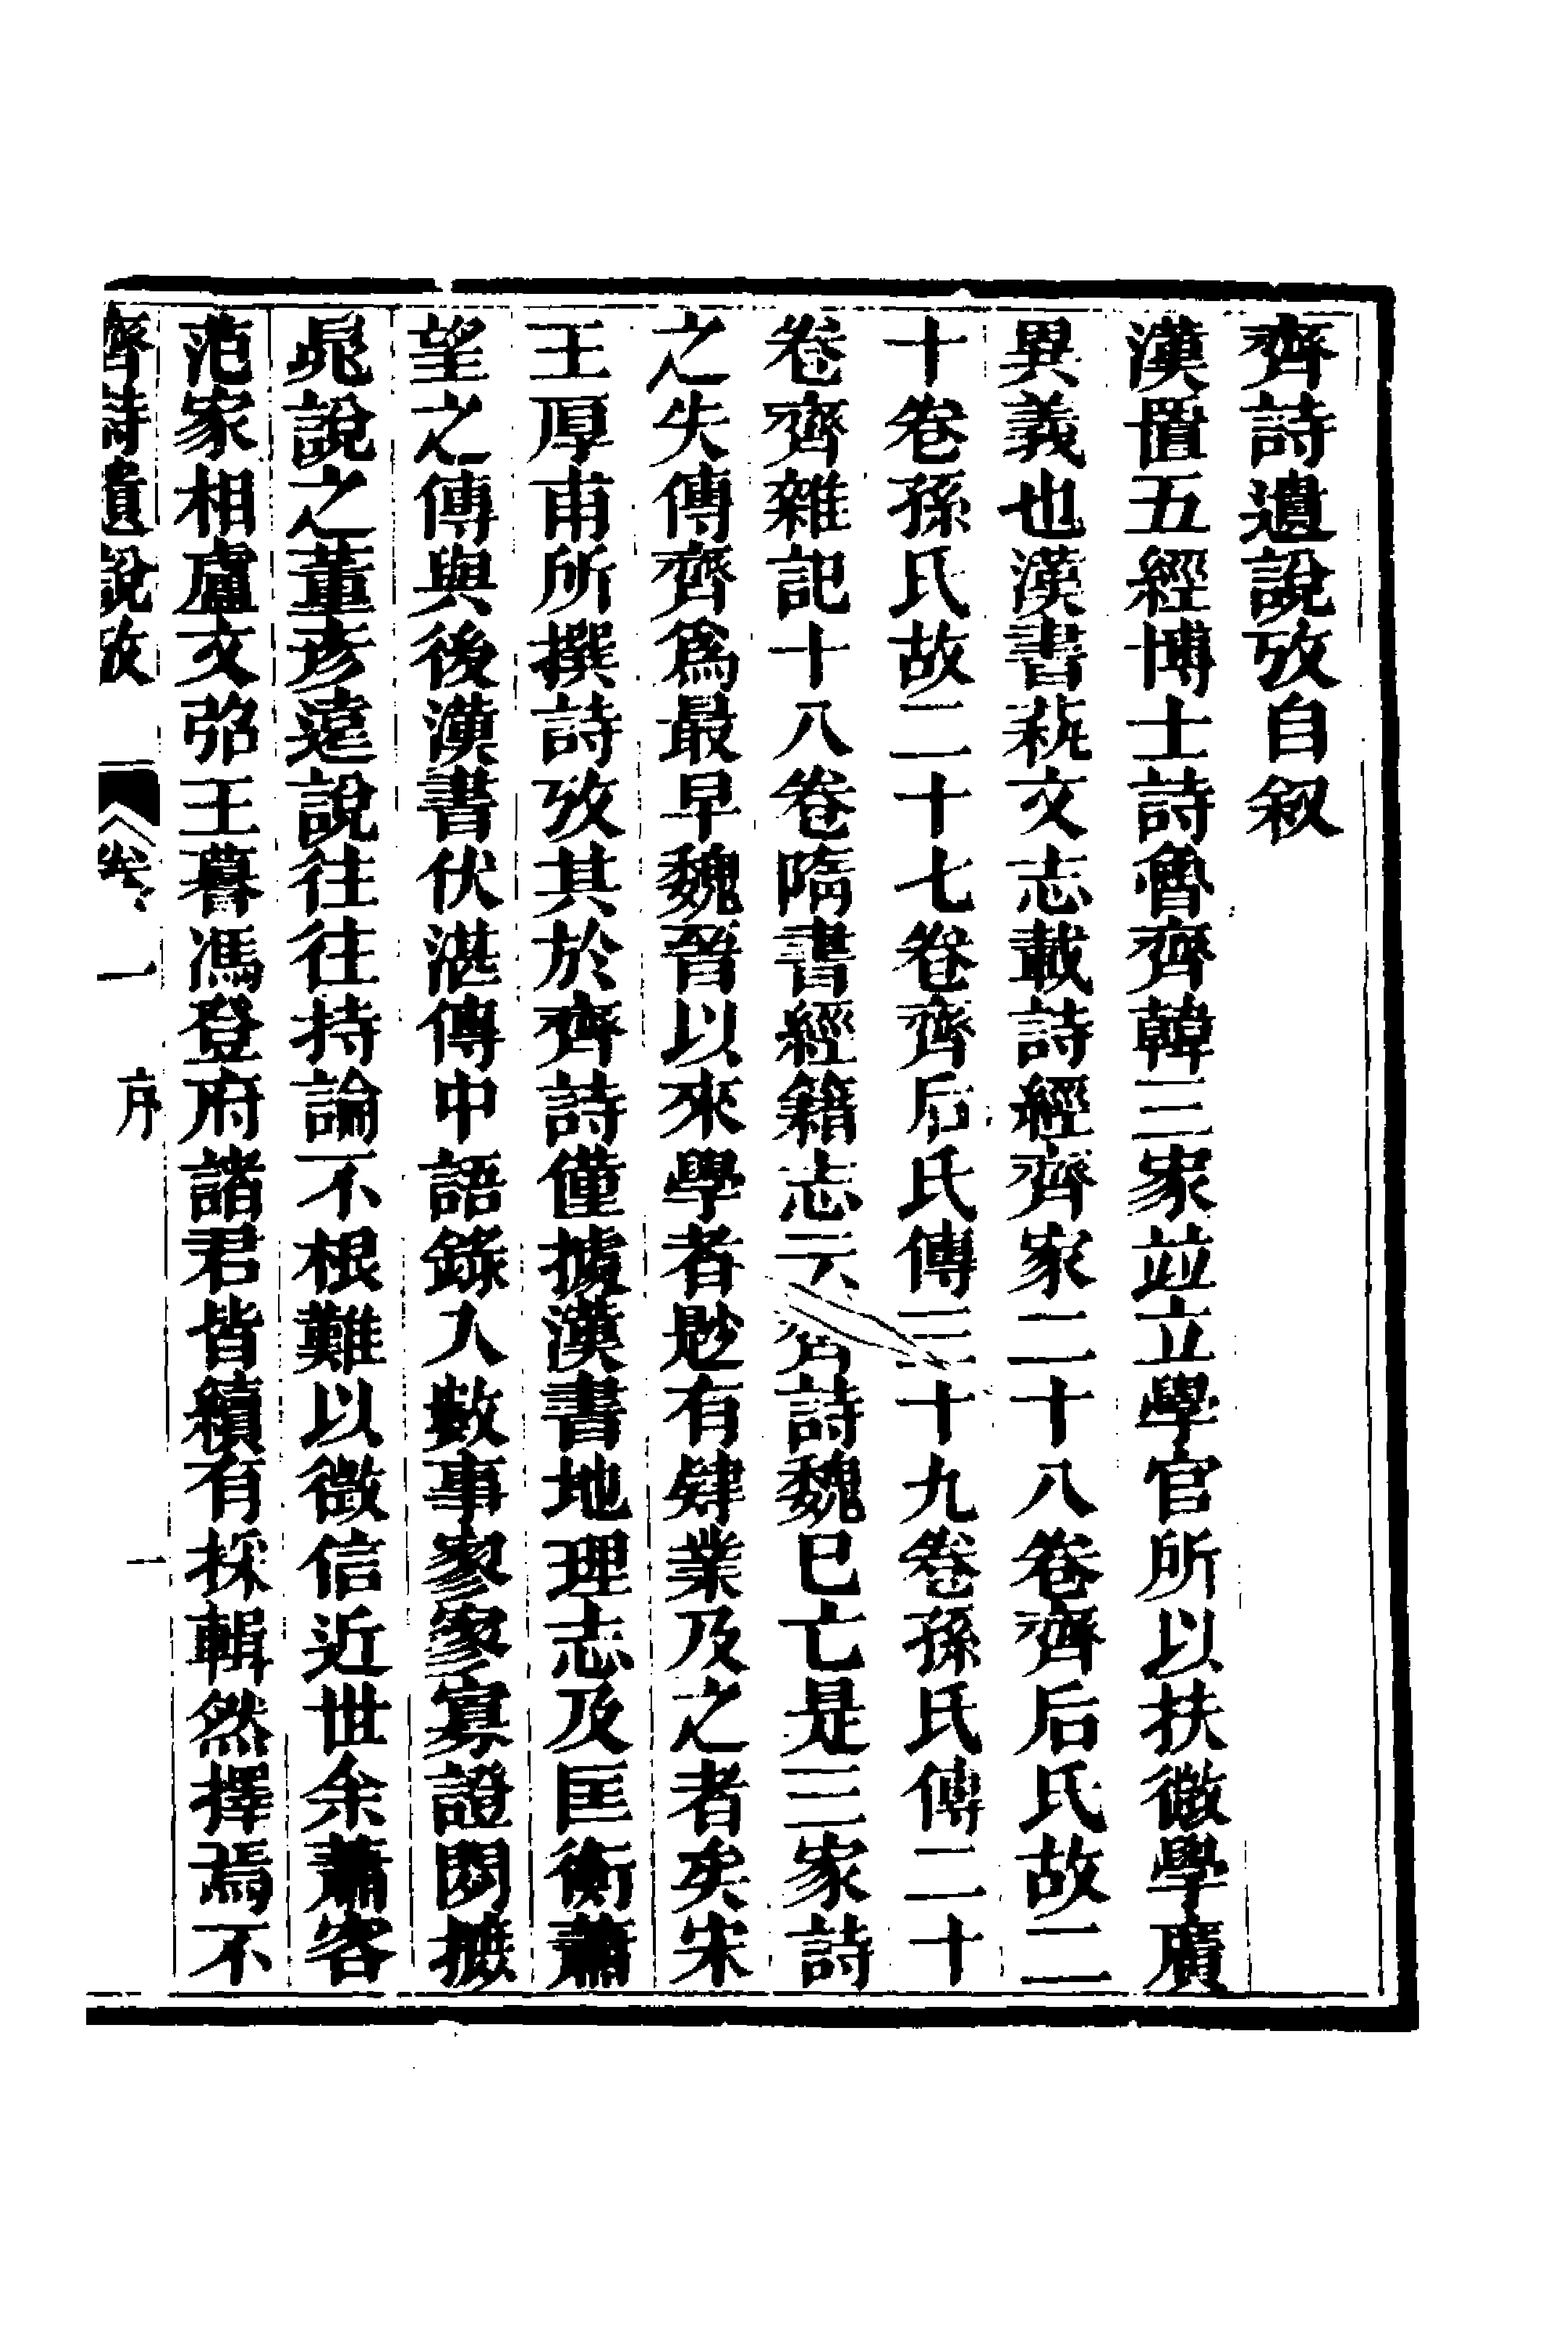 齊詩遺說攷自叙
漢置五經博士詩魯齊韓三家竝立學官所以扶微學廣
異義也漢書蓺文志載詩經齊家二十八卷齊后氏故二
十卷孫氏故二十七卷齊后氏傳三十九卷孫氏傳二十
卷齊雜記十八卷隋書經籍志云齊詩魏已亡是三家詩
之失傳齊爲最早魏晉以來學者尟有肄業及之者矣宋
王厚甫所撰詩攷其於齊詩僅據漢書地理志及匡衡蕭
望之傳與後漢書伏湛傳中語錄入數事寥寥寡證閒摭
晁說之董彥遠說往往持論不根難以徵信近世余蕭客
范家相盧文弨王謩馮登府諸君皆續有採輯然擇焉不
齊詩遺說攷 卷一 序 一